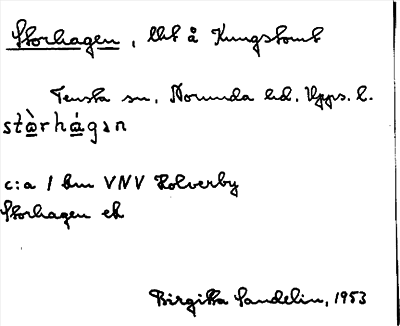 Storhagen, llht å Kungstomt
Tensta sn, Norunda hd, Upps. l.
stὰrhágən
c:a 1 km VNV Holverby
Storhagen ek
Birgitta Sandelin, 1953